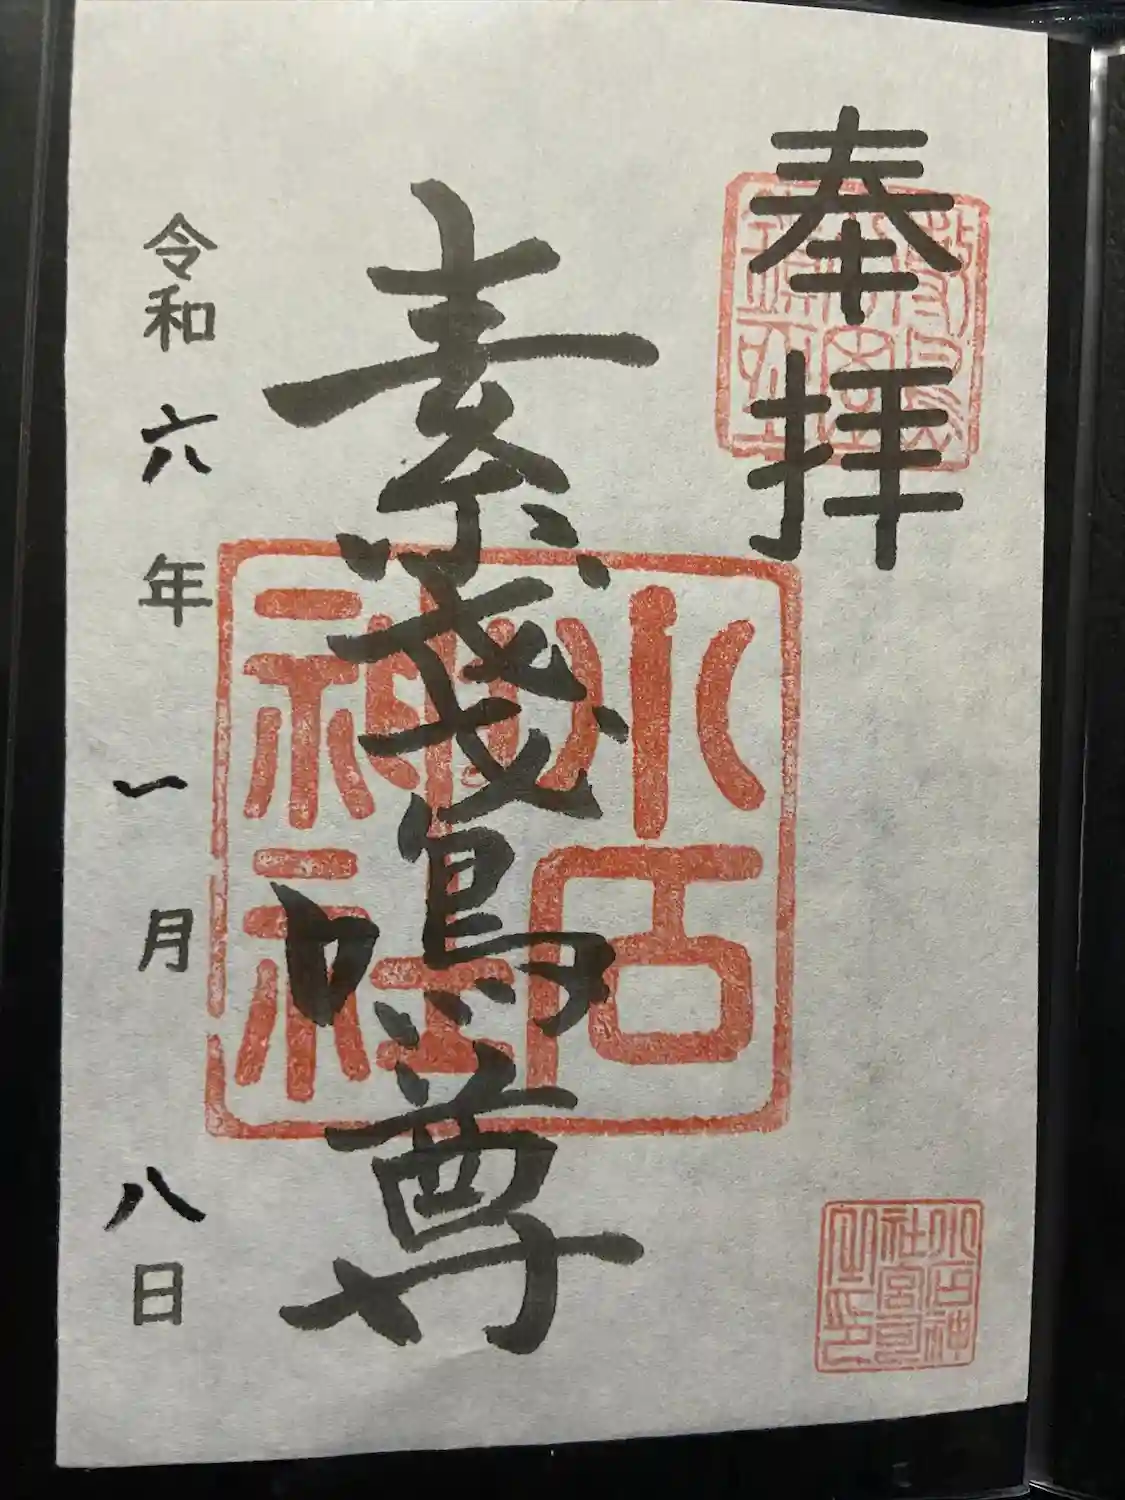 奉拝
素戔嗚尊
水石神社
水石神社宮司之印
令和六年一月八日